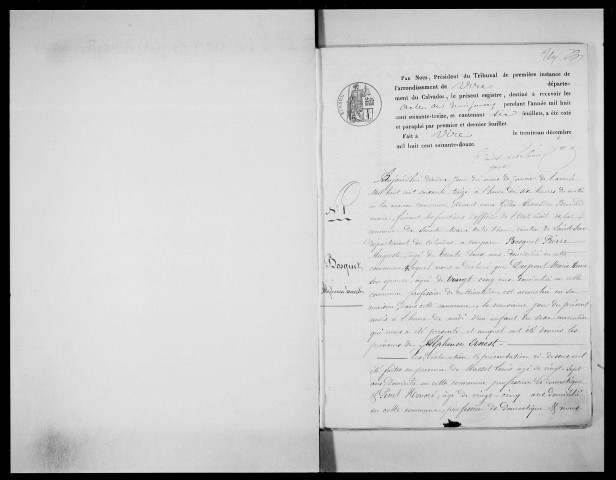 Par Nous, Président du Tribunal de première instance de
l'arrondissement de Vire départe-
ment du Calvados, le présent registre, destiné à recevoir les
Actes de naissances pendant l'année mil huit
cent soixante-treize, et contenant six feuillets, a été coté
et paraphé par premier et dernier feuillet.
Fait à Vire le trente-un décembre
mil huit cent soixante-douze.
Aujourd'hui dixième jour du mois de janvier de l'année
mil huit cent soixante treize à l'heure de six heures
en la maison commune devant nous
maire faisant les fonctions d'officier de l'Etat civil de la
N° 1
commune de Sainte Marie canton de
département du Calvados a comparu Bosquet Pierre
Bosquet
Auguste, agé de trente deux ans domicilié en cette
commune lequel nous a déclaré que Marie
Alphonse Ernest
son épouse, agée de vingt-cinq ans domiciliée en cette
commune, profession de est accouchée en sa
maison, dans cette commune le neuvième jour du présent
mois à l'heure de midi d'un enfant de sexe masculin
qui nous a été présenté et auquel ont été donnés les
prénoms de Alphonse Ernest.
Les déclaration et présentation ci dessus ont
été faites en présence de Louis agé de vingt-sept
ans domicilié en cette commune profession de domestique
& Honoré, agé de vingt-cinq ans domicilié
en cette commune, profession de domestique & nous